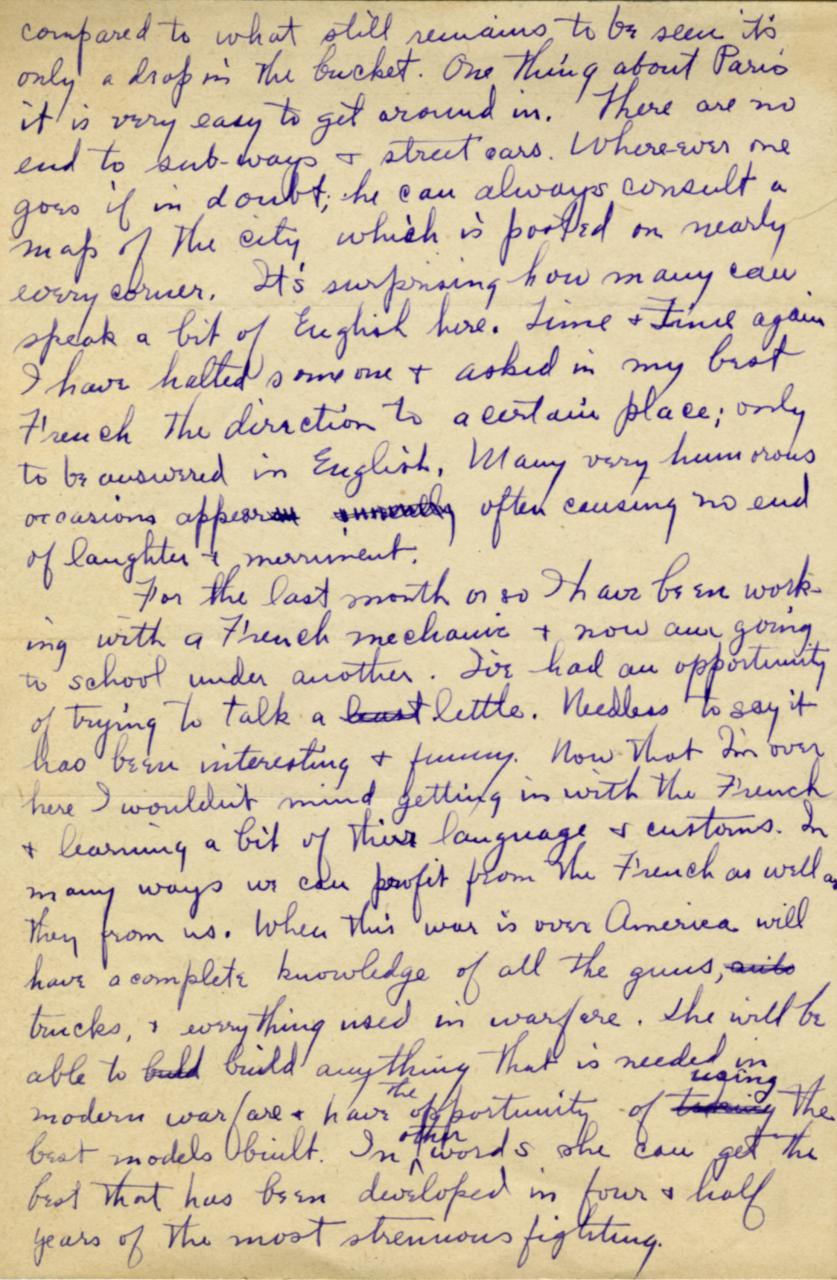 compared to what still remains to be seen it's
only a drop in the bucket. One thing about Paris
it is very easy to get around in. There are no
end to sub-ways & street cars. Where-ever one
goes if in doubt; he can always consult a
map of the city which is posted on nearly
every corner. It's surprising how many can
speak a bit of English here. Time & Time again
I have halted some one & asked in my best
French the direction to a certain place; only
to be answered in English. Many very humorous
occasions appear often causing no end
of laughter & merriment.
For the last month or so I have been work-
ing with a French mechanic & now am going
to school under another. I've had an opportunity
of trying to talk a least little. Needless to say it
has been interesting & funny. Now that I'm over
here I wouldn't mind getting in with the French
& learning a bit of their language & customs. In
many ways we can profit from the French as well as
they from us. When this war is over America will
have a complete knowledge of all the guns,
trucks, & everything used in warfare. She will be
able to build build anything that is needed in
modern warfare & have the opportunity of using the
best models built. In other words she can get the
best that has been developed in four & half
years of the most strenuous fighting.